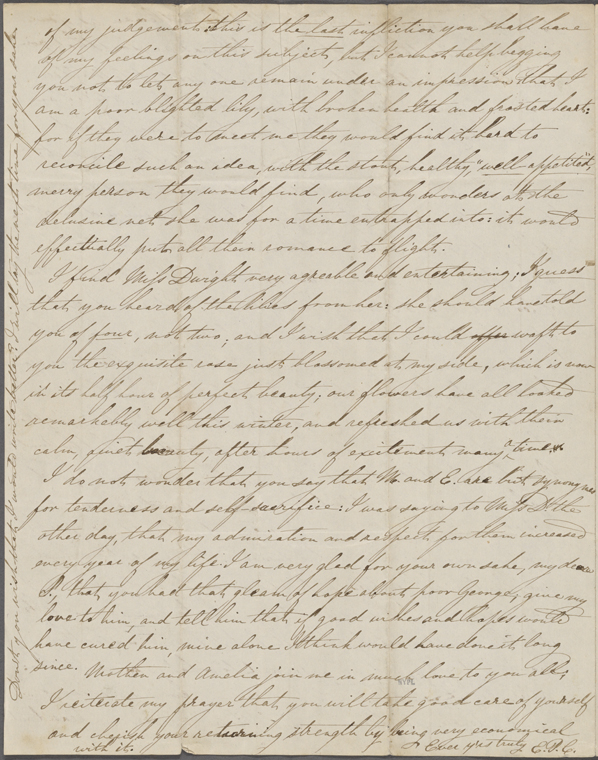 of my judgement: this is the last infliction you shall have
of my feelings on this subject, but I cannot help begging
you not to let any one remain under an impression that I
am a poor blighted lily, with broken health and frosted heart:
for if they were to meet me they would find it hard to
reconcile such an idea, with the stout, healthy, "well appetited",
merry person they would find, who only wonders at the
delusive net she was for a time entrapped into: it would
effectually put all their romance to flight.
I find Miss Dwight very agreeable and entertaining; I guess
that you heard of the lilies from her: she should have told
you of four, not two; and I wish that I could waft to
you the exquisite rose just blossomed at my side, which is now
in its half hour of perfect beauty; our flowers have all looked
remarkably well this winter, and refreshed us with their
calm, quiet beauty, after hours of excitement many a time.
I do not wonder that you say that M. and E. are but synonymes
for tenderness and self-sacrifice: I was saying to Miss D. the
other day, that my admiration and respect for them increased
every year of my life. I am very glad for your own sake, my dear
S., that you had that gleam of hope about poor George, give my
love to him, and tell him that if good wishes and hopes would
have cured him, mine alone I think would have done it long
since. Mother and Amelia join me in much love to you all;
I reiterate my prayer that you will take good care of yourself
and cherish your returning strength by being very economical
with it. Ever yrs truly E.L.C.
Don't you wish that I would write better? I will try the next time for your sake.